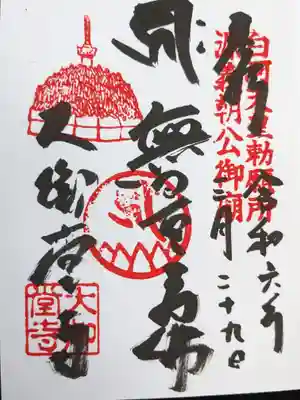 白河天皇勅願所
源義朝公御廟
令和六年
二月二十九日
無量寿
大御堂寺
大御堂寺